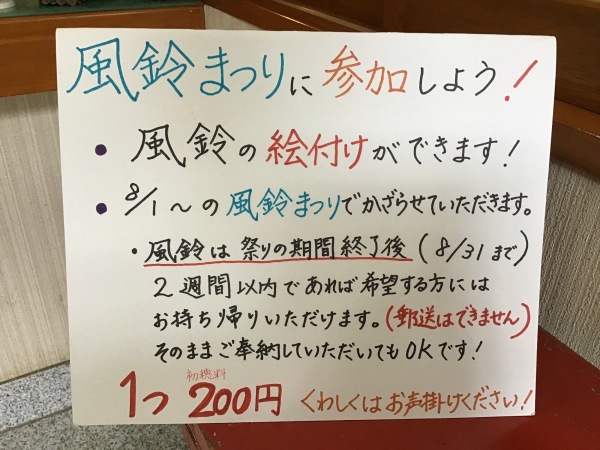 風鈴まつりに参加しよう!
• 風鈴の絵付けができます!
• 8/1〜の風鈴まつりでかざらせていただきます。
・風鈴は祭りの期間終了後(8/31まで)
2週間以内であれば希望する方には
お持ち帰りいただけます。(郵送はできません)
そのままご奉納していただいてもOKです!
初穂料
1つ 200円 くわしくはお声掛けください!